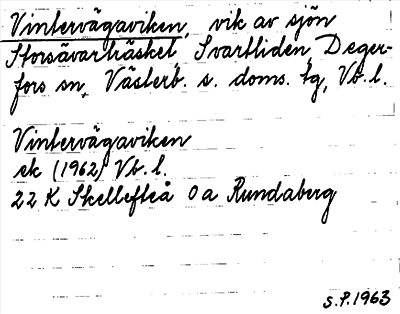 Vintervägaviken, vik av sjön
Storsävarträsket, Svartliden, Deger-
fors sn, Västerb. s. doms. tg, Vb. l.
Vintervägaviken
ek (1962) Vb. l.
22 K Skellefteå 0 a Rundaberg
S.P. 1963